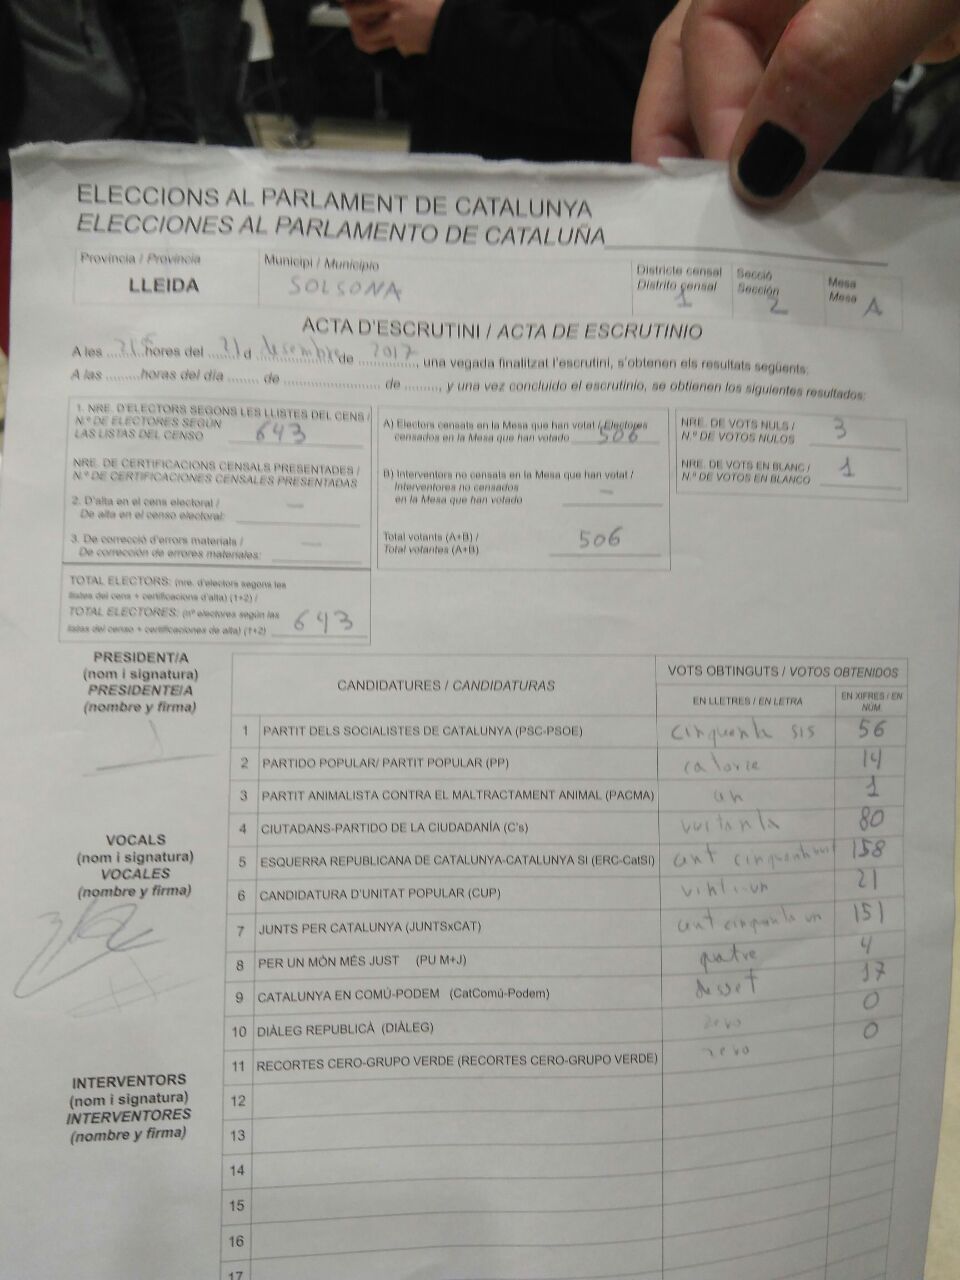 ELECCIONS AL PARLAMENT DE CATALUNYA
ELECCIONES AL PARLAMENTO DE CATALUÑA
Provincia / Provincia
LLEIDA
Municipi / Municipio
SOLSONA
Districte censal
Distrito censal
1
Secció
Sección
2
Mesa
Mesa
A
ACTA D'ESCRUTINI / ACTA DE ESCRUTINIO
A les ... hores del 21 d desembre de 2017, una vegada finalitzat l'escrutini, s'obtenen els resultats següents:
A las .........horas del día ........ de ......................... de ........, y una vez concluido el escrutinio, se obtienen los siguientes resultados:
1. NRE. D'ELECTORS SEGONS LES LLISTES DEL CENS /
N.º DE ELECTORES SEGÚN
LAS LISTAS DEL CENSO 643
NRE. DE CERTIFICACIONS CENSALS PRESENTADES /
N.º DE CERTIFICACIONES CENSALES PRESENTADAS
2. D'alta en el cens electoral /
De alta en el censo electoral: —
3. De correcció d'errors materials /
De corrección de errores materiales: —
TOTAL ELECTORS: (nre. d'electors segons les
llistes del cens + certificacions d'alta) (1+2) /
TOTAL ELECTORES: (nº electores según las
listas del censo + certificaciones de alta) (1+2) 643
A) Electors censats en la Mesa que han votat / Electores
censados en la Mesa que han votado 506
B) Interventors no censats en la Mesa que han votat /
Interventores no censados
en la Mesa que han votado —
Total votants (A+B) /
Total votantes (A+B) 506
NRE. DE VOTS NULS /
N.º DE VOTOS NULOS 3
NRE. DE VOTS EN BLANC /
N.º DE VOTOS EN BLANCO 1
PRESIDENT/A
(nom i signatura)
PRESIDENTE/A
(nombre y firma)
VOCALS
(nom i signatura)
VOCALES
(nombre y firma)
INTERVENTORS
(nom i signatura)
INTERVENTORES
(nombre y firma)
CANDIDATURES / CANDIDATURAS
VOTS OBTINGUTS / VOTOS OBTENIDOS
EN LLETRES / EN LETRA
EN XIFRES / EN
NÚM.
1 PARTIT DELS SOCIALISTES DE CATALUNYA (PSC-PSOE) cinquanta sis 56
2 PARTIDO POPULAR/ PARTIT POPULAR (PP) catorze 14
3 PARTIT ANIMALISTA CONTRA EL MALTRACTAMENT ANIMAL (PACMA) un 1
4 CIUTADANS-PARTIDO DE LA CIUDADANÍA (C's) vuitanta 80
5 ESQUERRA REPUBLICANA DE CATALUNYA-CATALUNYA SI (ERC-CatSI) cent cinquantavuit 158
6 CANDIDATURA D'UNITAT POPULAR (CUP) vint-i-un 21
7 JUNTS PER CATALUNYA (JUNTSxCAT) cent cinquanta un 151
8 PER UN MÓN MÉS JUST (PU M+J) quatre 4
9 CATALUNYA EN COMÚ-PODEM (CatComú-Podem) desset 17
10 DIÀLEG REPUBLICÀ (DIÀLEG) zero 0
11 RECORTES CERO-GRUPO VERDE (RECORTES CERO-GRUPO VERDE) zero 0
12
13
14
15
16
17